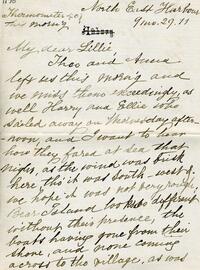 North East Harbor
9 mo. 29. 11
Thermometer 50
this morng
My dear Lillie,
Theo and Anna
left us this mor'g and
we miss them exceedingly, as
well Harry and Ellie who
sailed away on Wednesday after
noon, and I want to learn
how they fared at sea that
night, as the wind was brisk
here, tho' it was south-west &
we hope it was not very rough.
Bear Island looks different
without their presence, the
boats having gone from their
shore, and none coming
across to the village, as was